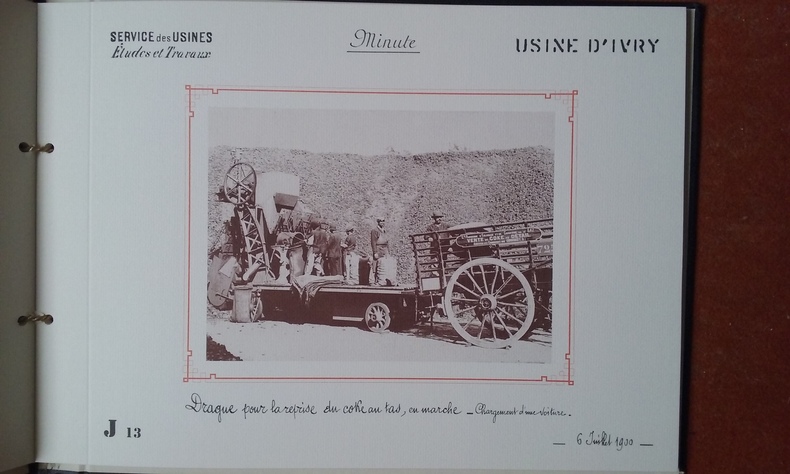 SERVICE des USINES
Études et Travaux
Minute
USINE D'IVRY
VENTE DE COKE AU DÉTAIL
Drague pour la reprise du coke au tas, en marche _ Chargement d'une voiture.
J 13
_ 6 Juillet 1900 _